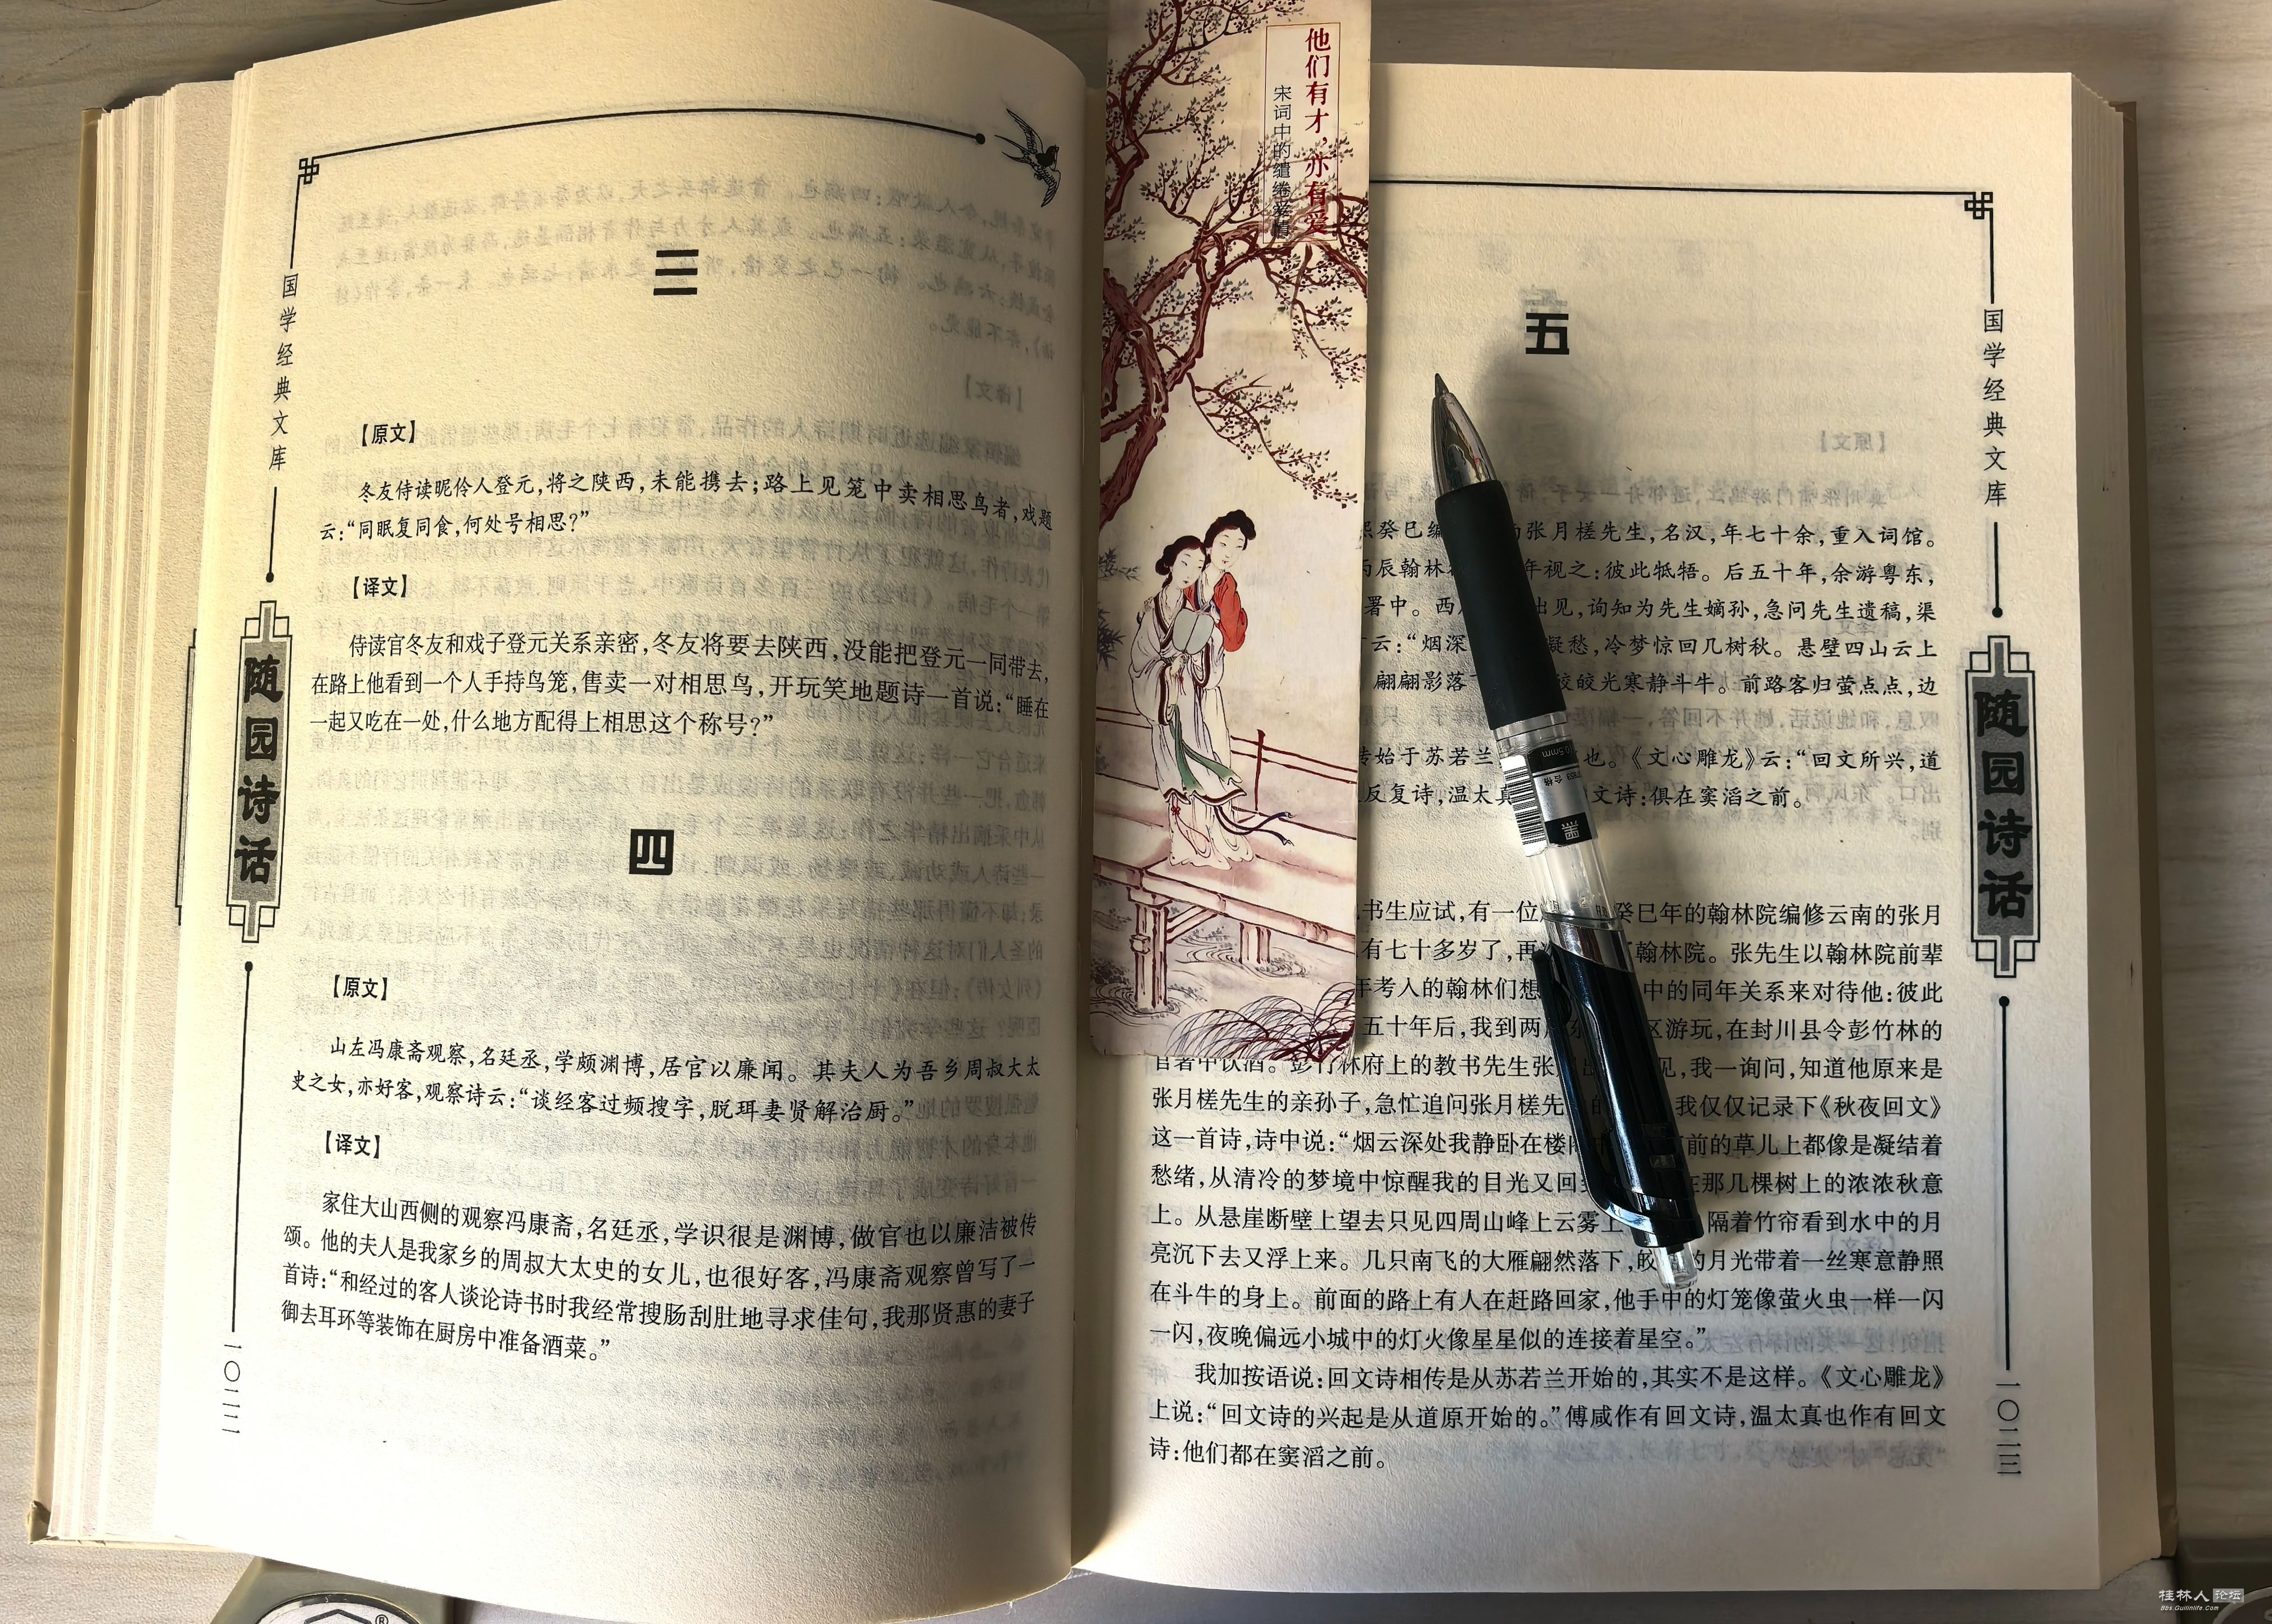 三
【原文】
冬友侍读昵伶人登元,将之陕西,未能携去;路上见笼中卖相思鸟者,戏题
云:“同眠复同食,何处号相思?”
【译文】
侍读官冬友和戏子登元关系亲密,冬友将要去陕西,没能把登元一同带去,
在路上他看到一个人手持鸟笼,售卖一对相思鸟,开玩笑地题诗一首说:“睡在
一起又吃在一处,什么地方配得上相思这个称号?”
四
【原文】
山左冯康斋观察,名廷丞,学颇渊博,居官以廉闻。其夫人为吾乡周叔大太
史之女,亦好客,观察诗云:“谈经客过频搜字,脱珥妻贤解治厨。”
【译文】
家住大山西侧的观察冯康斋,名廷丞,学识很是渊博,做官也以廉洁被传
颂。他的夫人是我家乡的周叔大太史的女儿,也很好客,冯康斋观察曾写了一
首诗:“和经过的客人谈论诗书时我经常搜肠刮肚地寻求佳句,我那贤惠的妻子
御去耳环等装饰在厨房中准备酒菜。”
国学经典文库
随园诗话
一〇二二
他们有才,亦有爱
宋词中的缱绻爱情
五
熙癸巳编 张月槎先生,名汉,年七十余,重入词馆。
丙辰翰林 年视之:彼此牴牾。后五十年,余游粤东,
署中。西 出见,询知为先生嫡孙,急问先生遗稿,渠
云:“烟深 凝愁,冷梦惊回几树秋。悬壁四山云上
翩翩影落 皎皎光寒静斗牛。前路客归萤点点,边
传始于苏若兰 也。《文心雕龙》云:“回文所兴,道
反复诗,温太真 文诗:俱在窦滔之前。
书生应试,有一位 癸巳年的翰林院编修云南的张月
有七十多岁了,再 了翰林院。张先生以翰林院前辈
年考入的翰林们想 中的同年关系来对待他:彼此
五十年后,我到两 区游玩,在封川县令彭竹林的
官署中饮酒。彭竹林府上的教书先生张 出 见,我一询问,知道他原来是
张月槎先生的亲孙子,急忙追问张月槎先 的 我仅仅记录下《秋夜回文》
这一首诗,诗中说:“烟云深处我静卧在楼 前的草儿上都像是凝结着
愁绪,从清冷的梦境中惊醒我的目光又回 在那几棵树上的浓浓秋意
上。从悬崖断壁上望去只见四周山峰上云雾上 隔着竹帘看到水中的月
亮沉下去又浮上来。几只南飞的大雁翩然落下,皎 的月光带着一丝寒意静照
在斗牛的身上。前面的路上有人在赶路回家,他手中的灯笼像萤火虫一样一闪
一闪,夜晚偏远小城中的灯火像星星似的连接着星空。”
我加按语说:回文诗相传是从苏若兰开始的,其实不是这样。《文心雕龙》
上说:“回文诗的兴起是从道原开始的。”傅咸作有回文诗,温太真也作有回文
诗:他们都在窦滔之前。
国学经典文库
随园诗话
一〇二三
0.5mm
合格
黑
桂林人论坛
Bbs.Guilinlife.Com